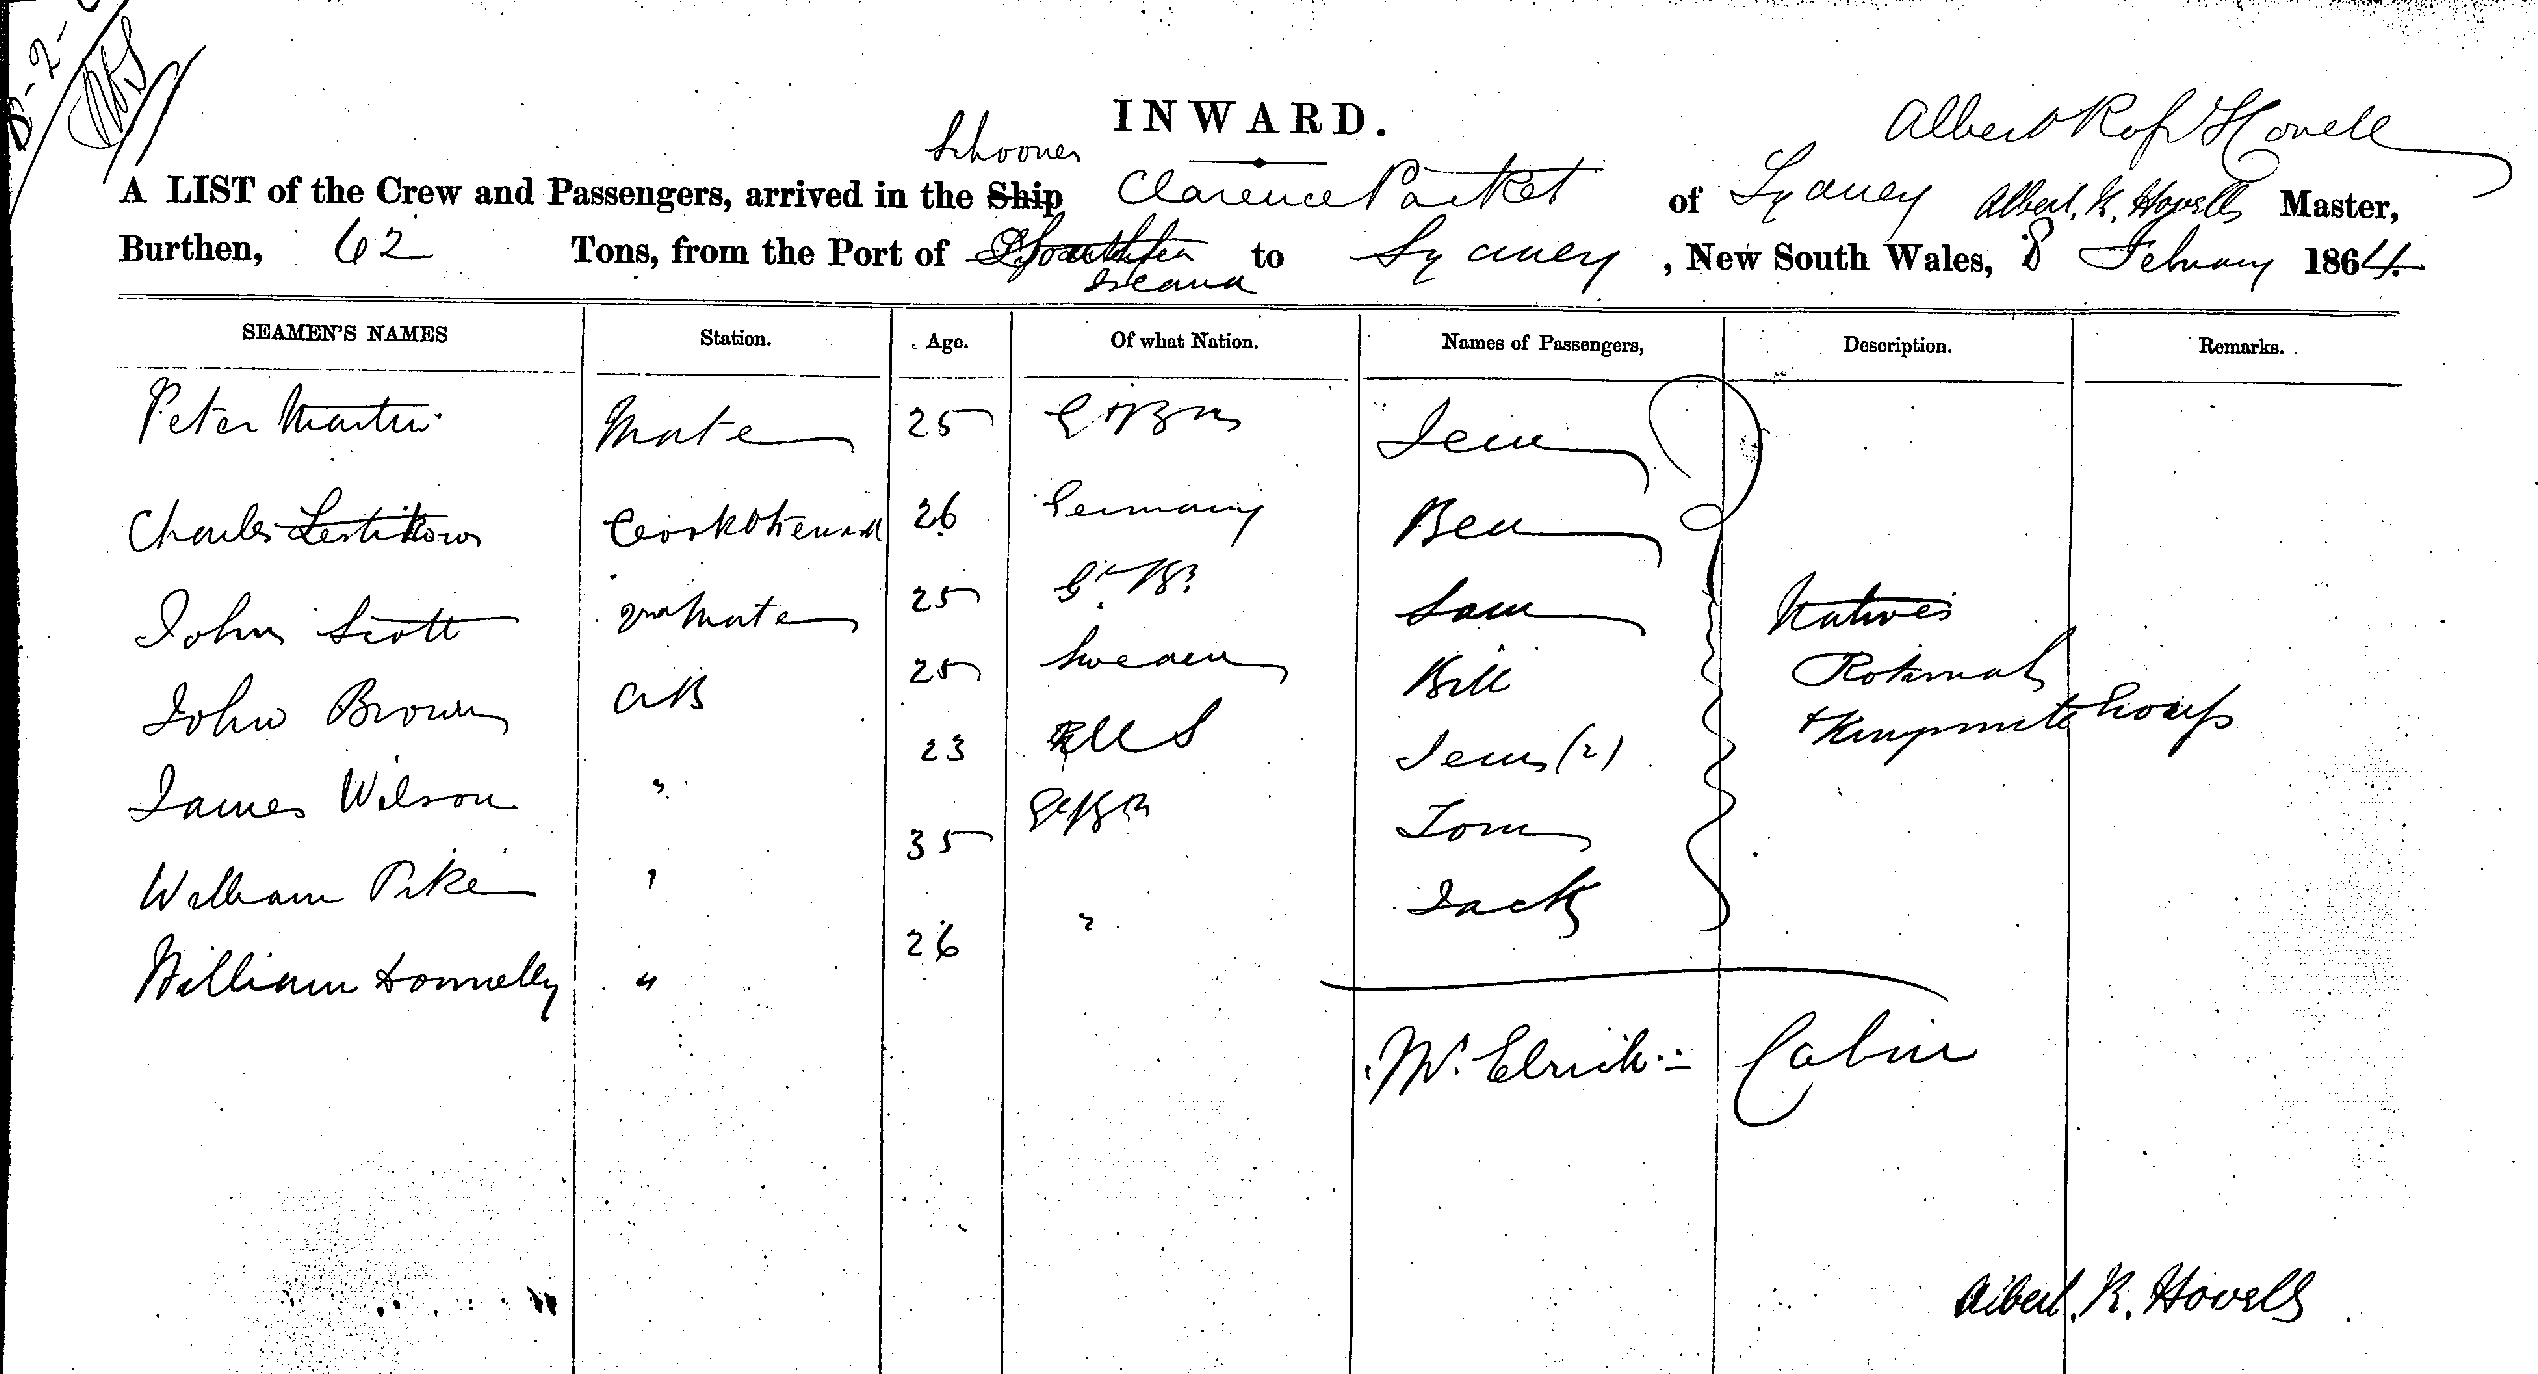 8-2-
INWARD.
Albert Ros Hovell
Schooner
A LIST of the Crew and Passengers, arrived in the Ship Clarence Packet of Sydney Albert. R. Hovell Master,
Burthen, 62 Tons, from the Port of South Sea to Sydney, New South Wales, 8 February 1864.
Island
SEAMEN'S NAMES Station. Age. Of what Nation. Names of Passengers, Description. Remarks.
Peter Martin Mate 25 Gt Bn Jem
Charles Cook & Steward 26 Germany Ben
John Scott 2nd Mate 25 Gt Br Sam Natives
John Brown AB 25 Sweden Bill Rotumah
James Wilson " 23 U S Jem (2) + Kingsmill Group
William Pike " 35 Gt Br Tom
William Donnelly " 26 " Jack
Mr. Elrick Cabin
Albert. R. Hovell